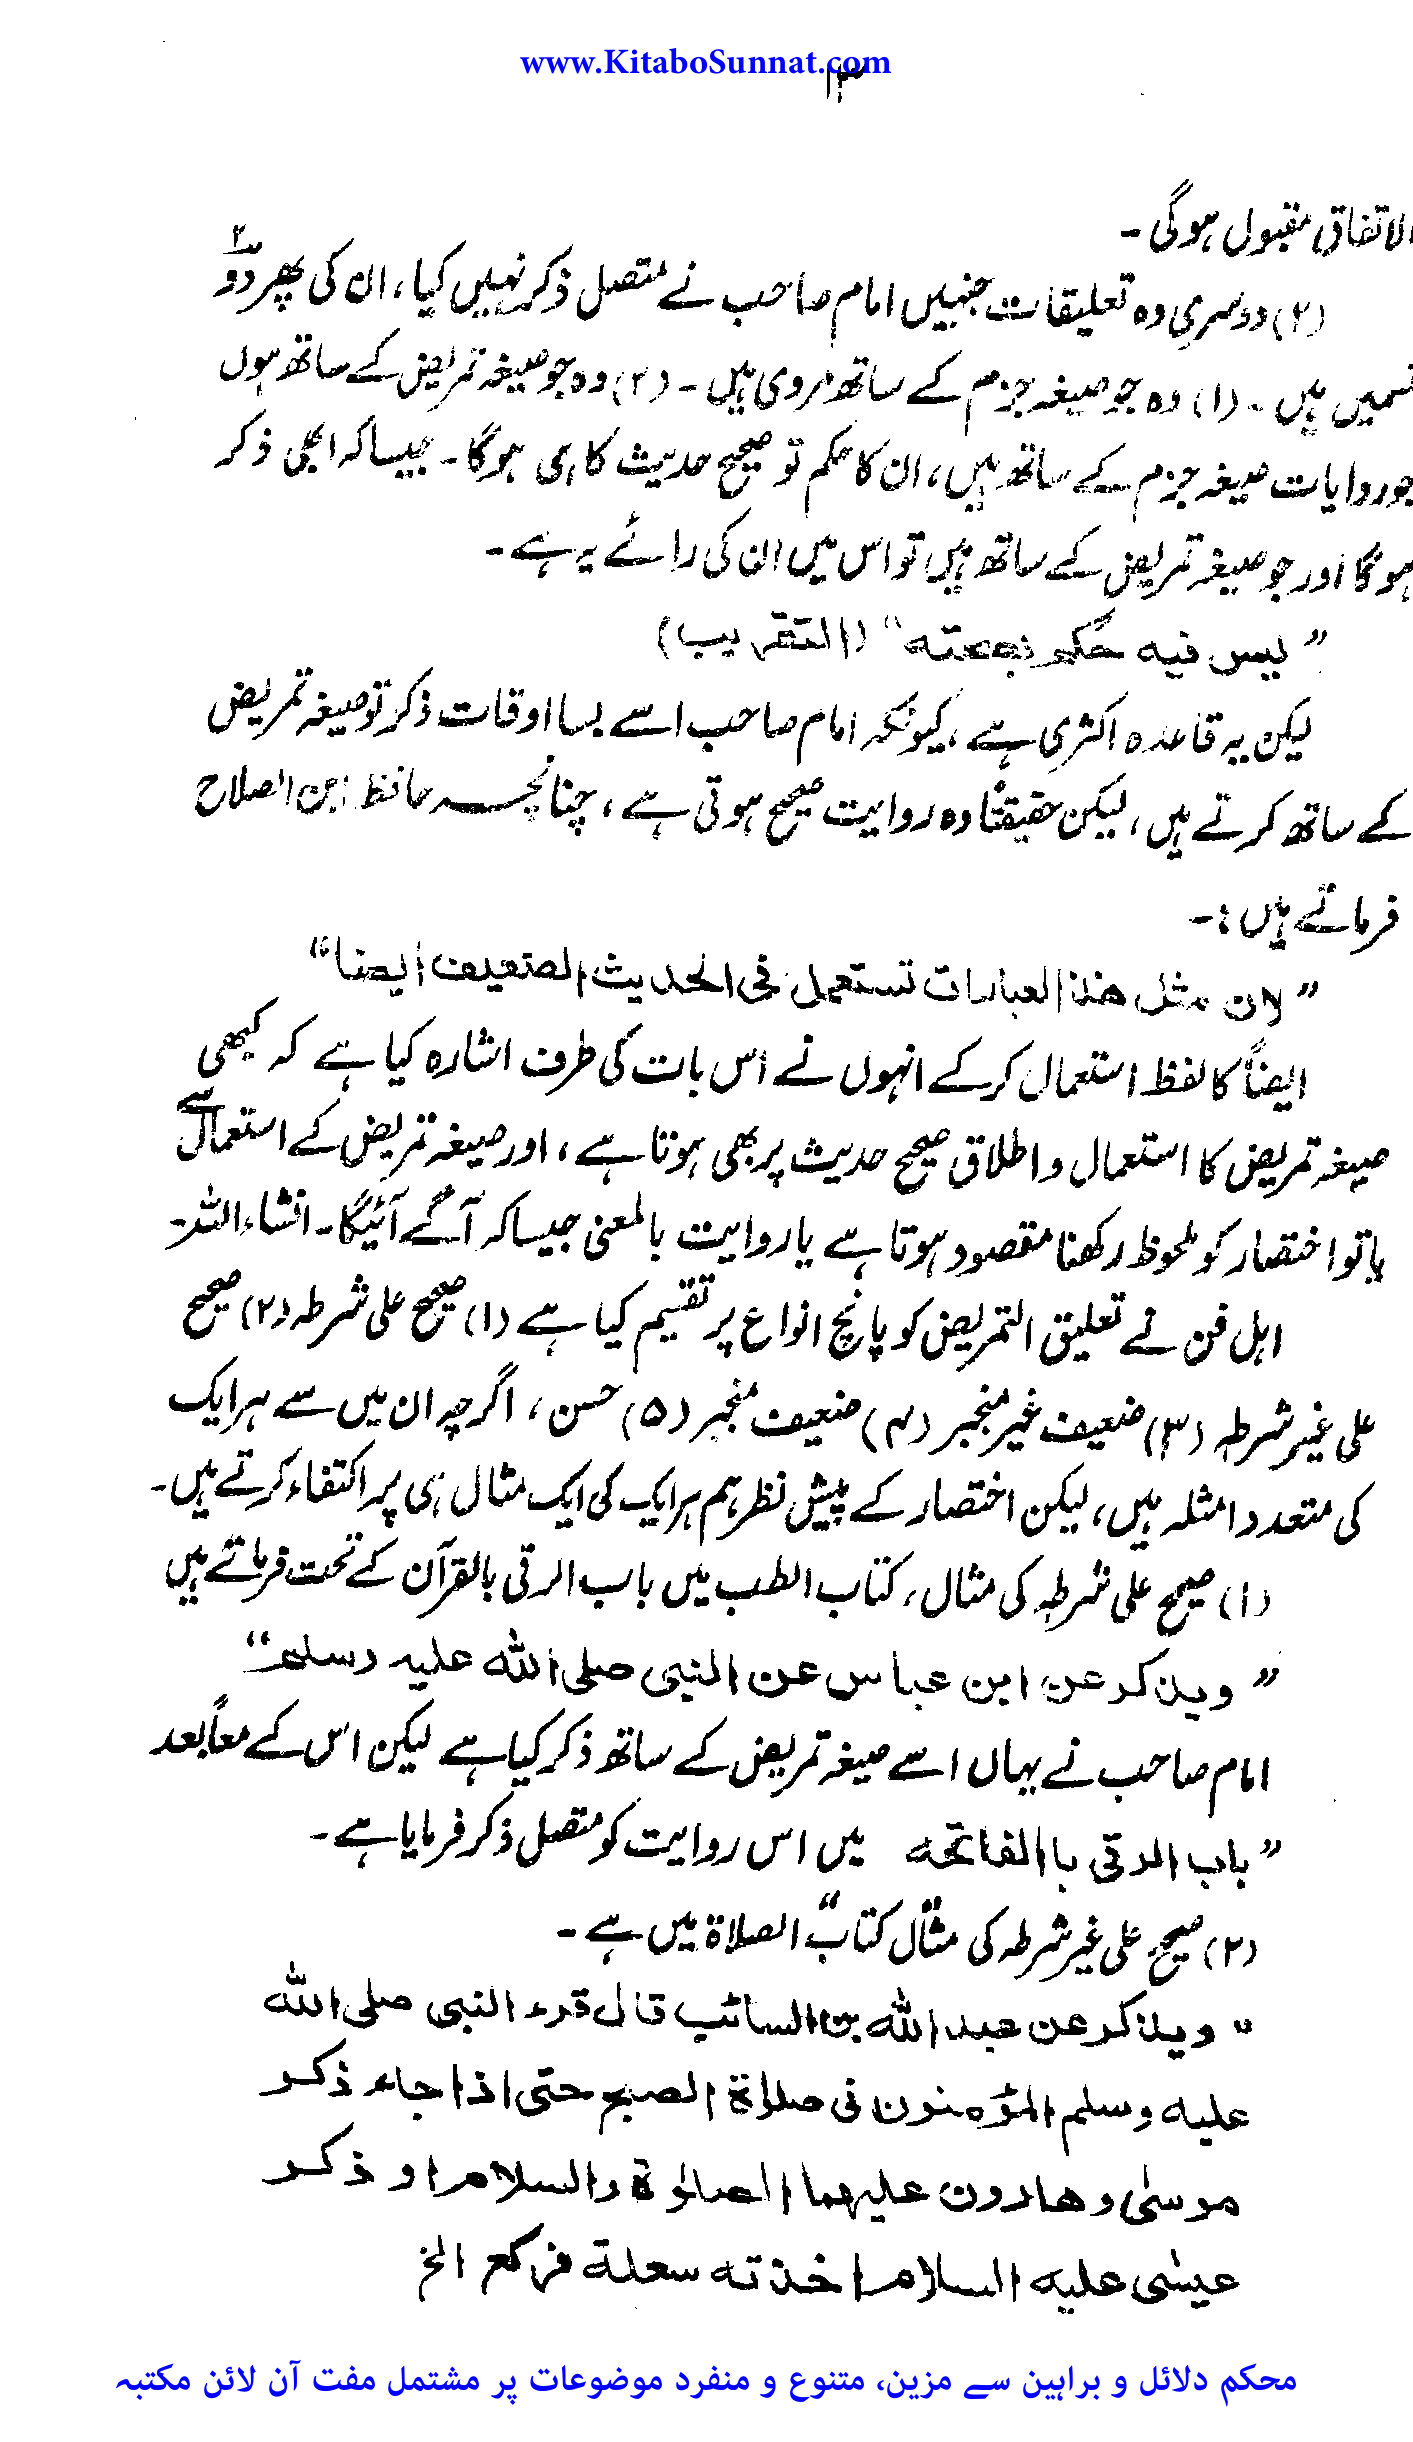 www.KitaboSunnat.com
۱۳
الاتفاق مقبول ہوگی ۔
(۲) دوسری وہ تعلیقات جنہیں امام صاحب نے متصل ذکر نہیں کیا، ان کی پھر دو۲
قسمیں ہیں ۔ (۱) وہ جو صیغہ جزم کے ساتھ مروی ہیں ۔ (۲) وہ جو صیغہ تمریض کے ساتھ ہوں
جو روایات صیغہ جزم کے ساتھ ہیں، ان کا حکم تو صحیح حدیث کا ہی ہوگا ۔ جیسا کہ ابھی ذکر
ہوگا اور جو صیغہ تمریض کے ساتھ ہیں تو اس میں ان کی رائے یہ ہے ۔
” لیس فیہ حکم بصحتہ“ (التقریب)
لیکن یہ قاعدہ اکثری ہے، کیونکہ امام صاحب اسے بسا اوقات ذکر تو صیغہ تمریض
کے ساتھ کرتے ہیں، لیکن حقیقتاً وہ روایت صحیح ہوتی ہے، چنانچہ حافظ ابن الصلاح
فرماتے ہیں :۔
” لان مثل ھذا العبارات تستعمل فی الحدیث الضعیف ایضا“
ایضاً کا لفظ استعمال کرکے انہوں نے اس بات کی طرف اشارہ کیا ہے کہ کبھی
صیغہ تمریض کا استعمال و اطلاق صحیح حدیث پر بھی ہوتا ہے، اور صیغہ تمریض کے استعمال سے
یا تو اختصار کو ملحوظ رکھنا مقصود ہوتا ہے یا روایت بالمعنی جیسا کہ آگے آئیگا ۔ انشاء اللہ ۔
اہل فن نے تعلیق التمریض کو پانچ انواع پر تقسیم کیا ہے (۱) صحیح علی شرطہ (۲) صحیح
علی غیر شرطہ (۳) ضعیف غیر منجبر (۴) ضعیف منجبر (۵) حسن، اگرچہ ان میں سے ہر ایک
کی متعدد امثلہ ہیں، لیکن اختصار کے پیش نظر ہم ہر ایک کی ایک مثال ہی پر اکتفاء کرتے ہیں ۔
(۱) صحیح علی شرطہ کی مثال، کتاب الطب میں باب الرقی بالقرآن کے تحت فرماتے ہیں
” ویذکر عن ابن عباس عن النبی صلی اللہ علیہ وسلم“
امام صاحب نے یہاں اسے صیغہ تمریض کے ساتھ ذکر کیا ہے لیکن اس کے معاً بعد
” باب الرقی باالفاتحہ میں اس روایت کو متصل ذکر فرمایا ہے ۔
(۲) صحیح علی غیر شرطہ کی مثال کتاب الصلاۃ میں ہے ۔
” ویذکر عن عبد اللہ بن السائب قال قرء النبی صلی اللہ
علیہ وسلم المؤمنون فی صلاۃ الصبح حتی اذا جاء ذکر
موسیٰ و ھارون علیھما الصلوٰۃ والسلام او ذکر
عیسیٰ علیہ السلام اخذتہ سعلۃ فرکع الخ
محکم دلائل و براہین سے مزین، متنوع و منفرد موضوعات پر مشتمل مفت آن لائن مکتبہ